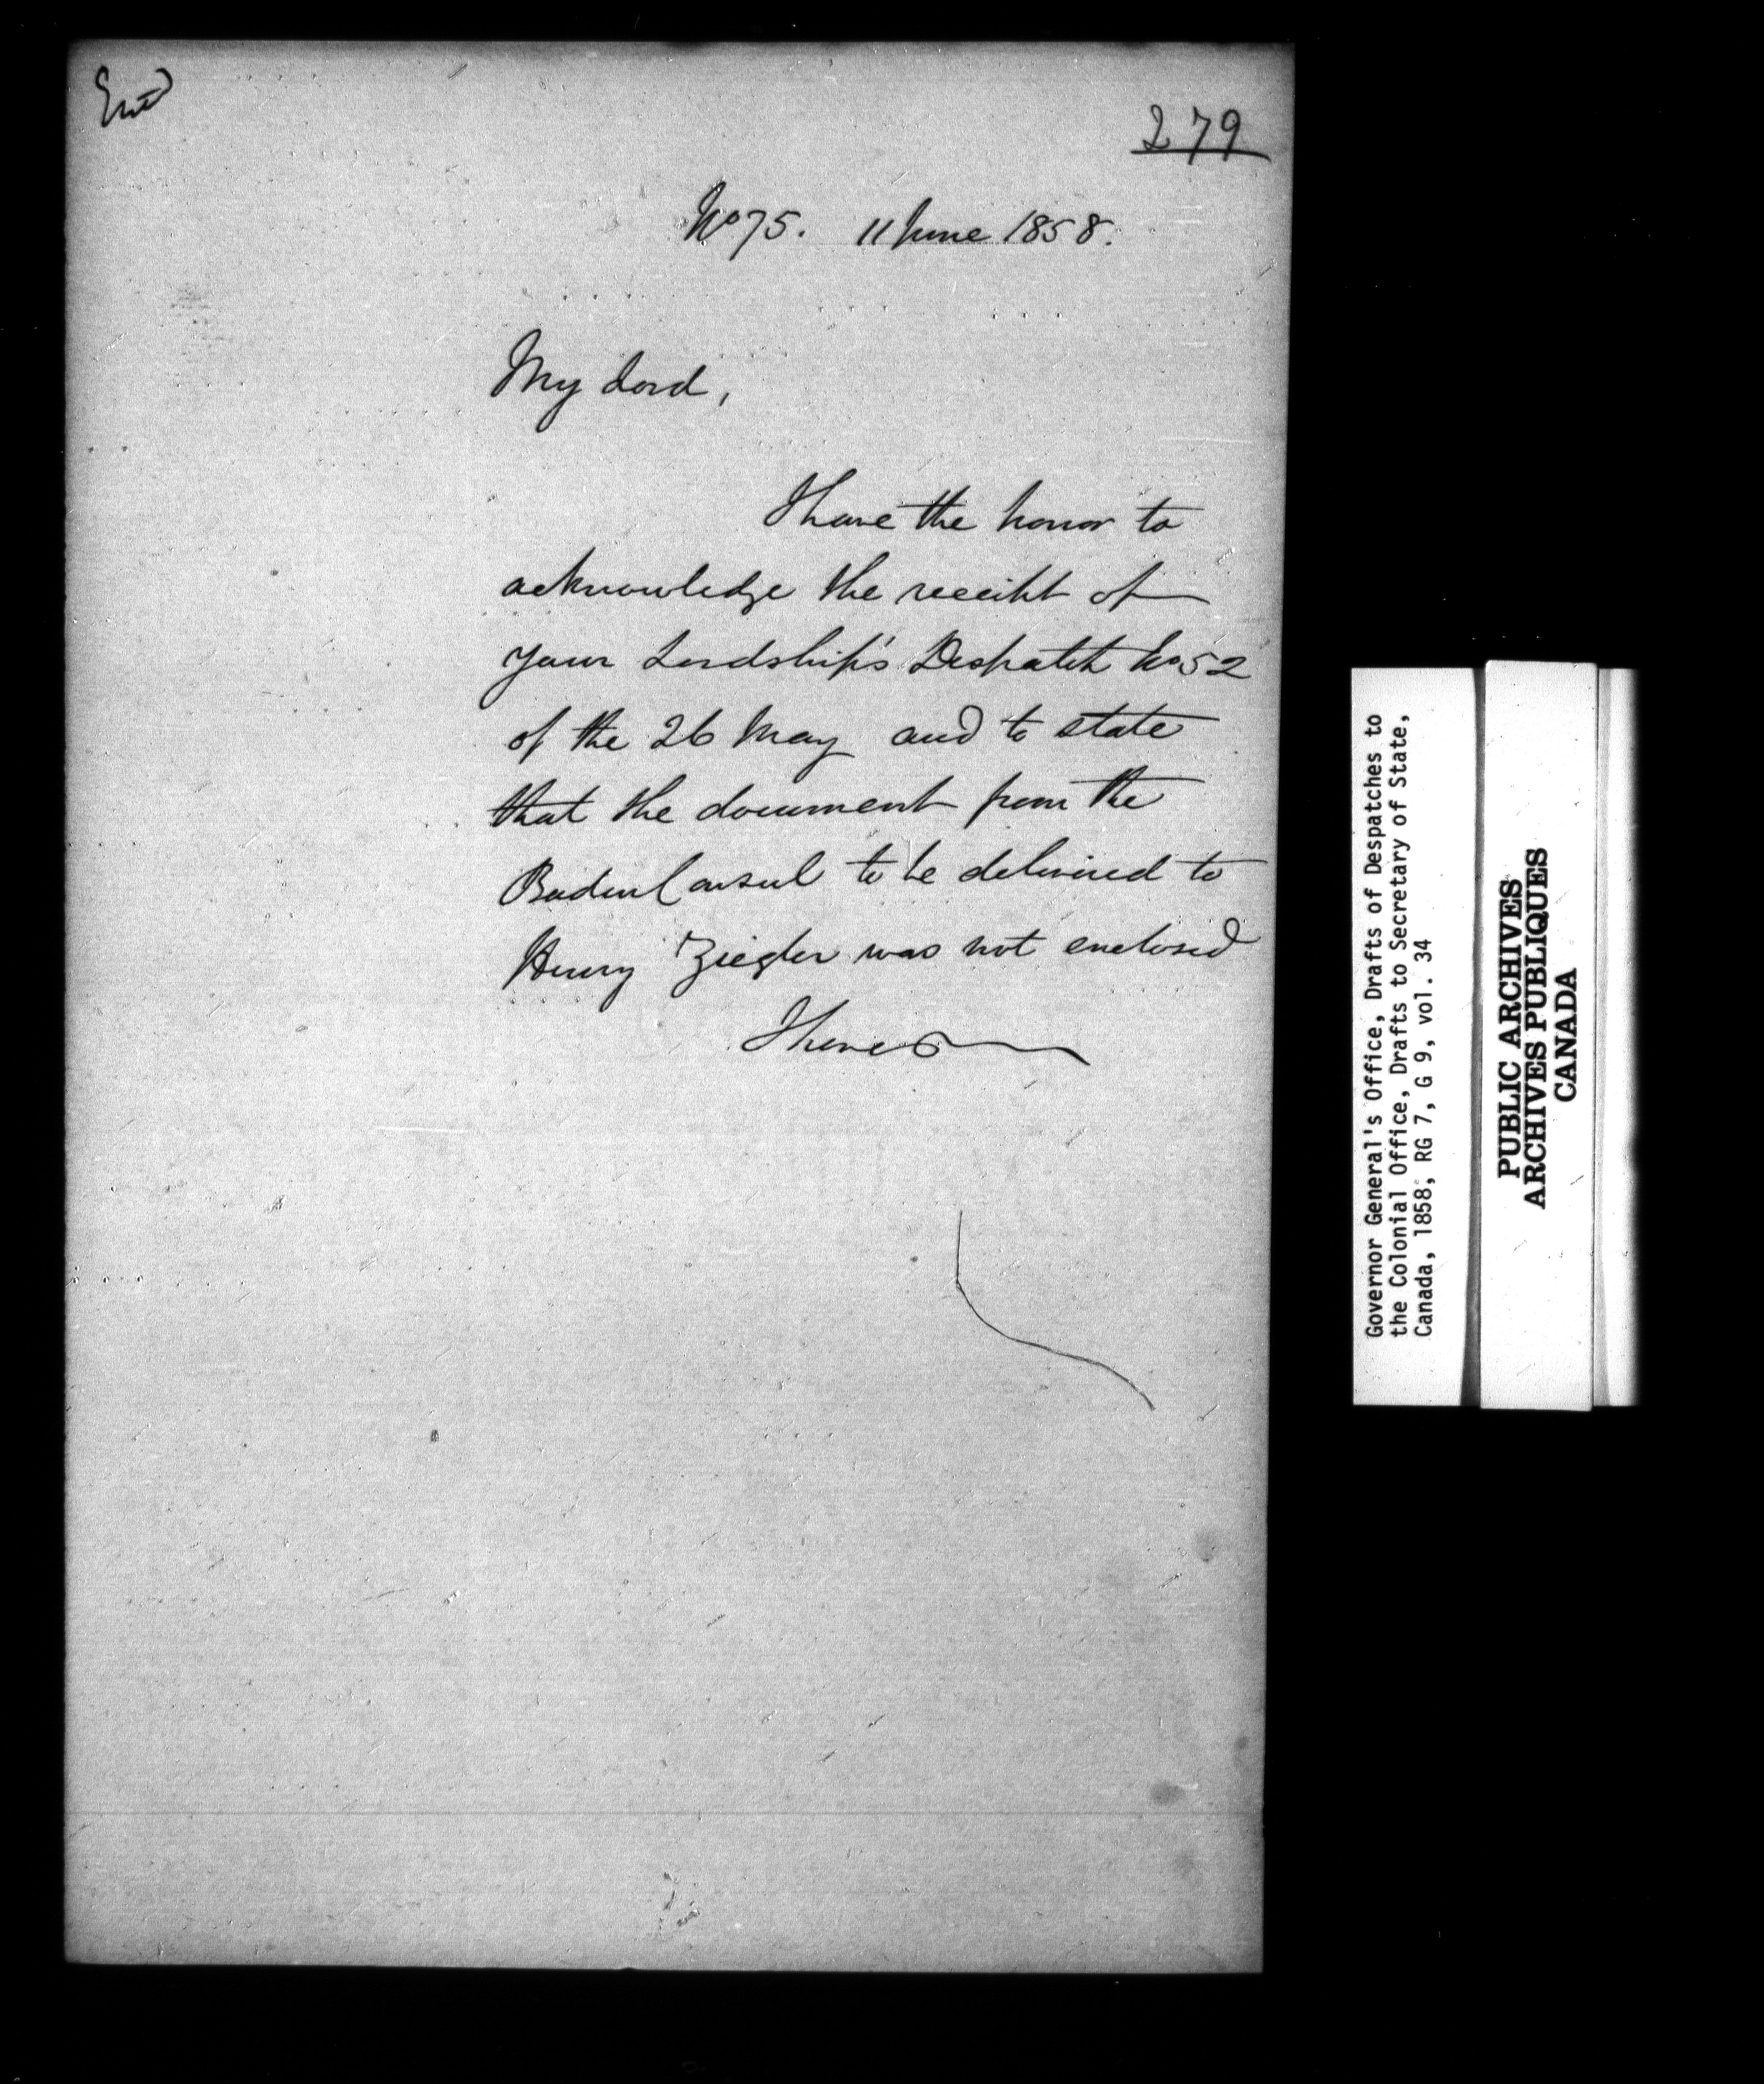 Entd
279
No 75. 11 June 1858.
My Lord,
I have the honor to
acknowledge the receipt of
your Lordship's Despatch No 52
of the 26 May and to state
that the document from the
Baden Consul to be delivered to
Henry Ziegler was not enclosed
I have
Governor General's Office, Drafts of Despatches to
the Colonial Office, Drafts to Secretary of State,
Canada, 1858, RG 7, G 9, vol. 34
PUBLIC ARCHIVES
ARCHIVES PUBLIQUES
CANADA